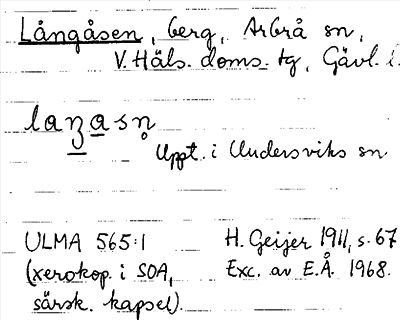 Långåsen, berg, Arbrå sn,
V. Häls. doms. tg, Gävl. l.
laŋasn̥
Uppt. i Undersviks sn
ULMA 565:1 H. Geijer 1911, s. 67
(xerokop. i SOA, Exc. av E.Å. 1968.
särsk. kapsel).